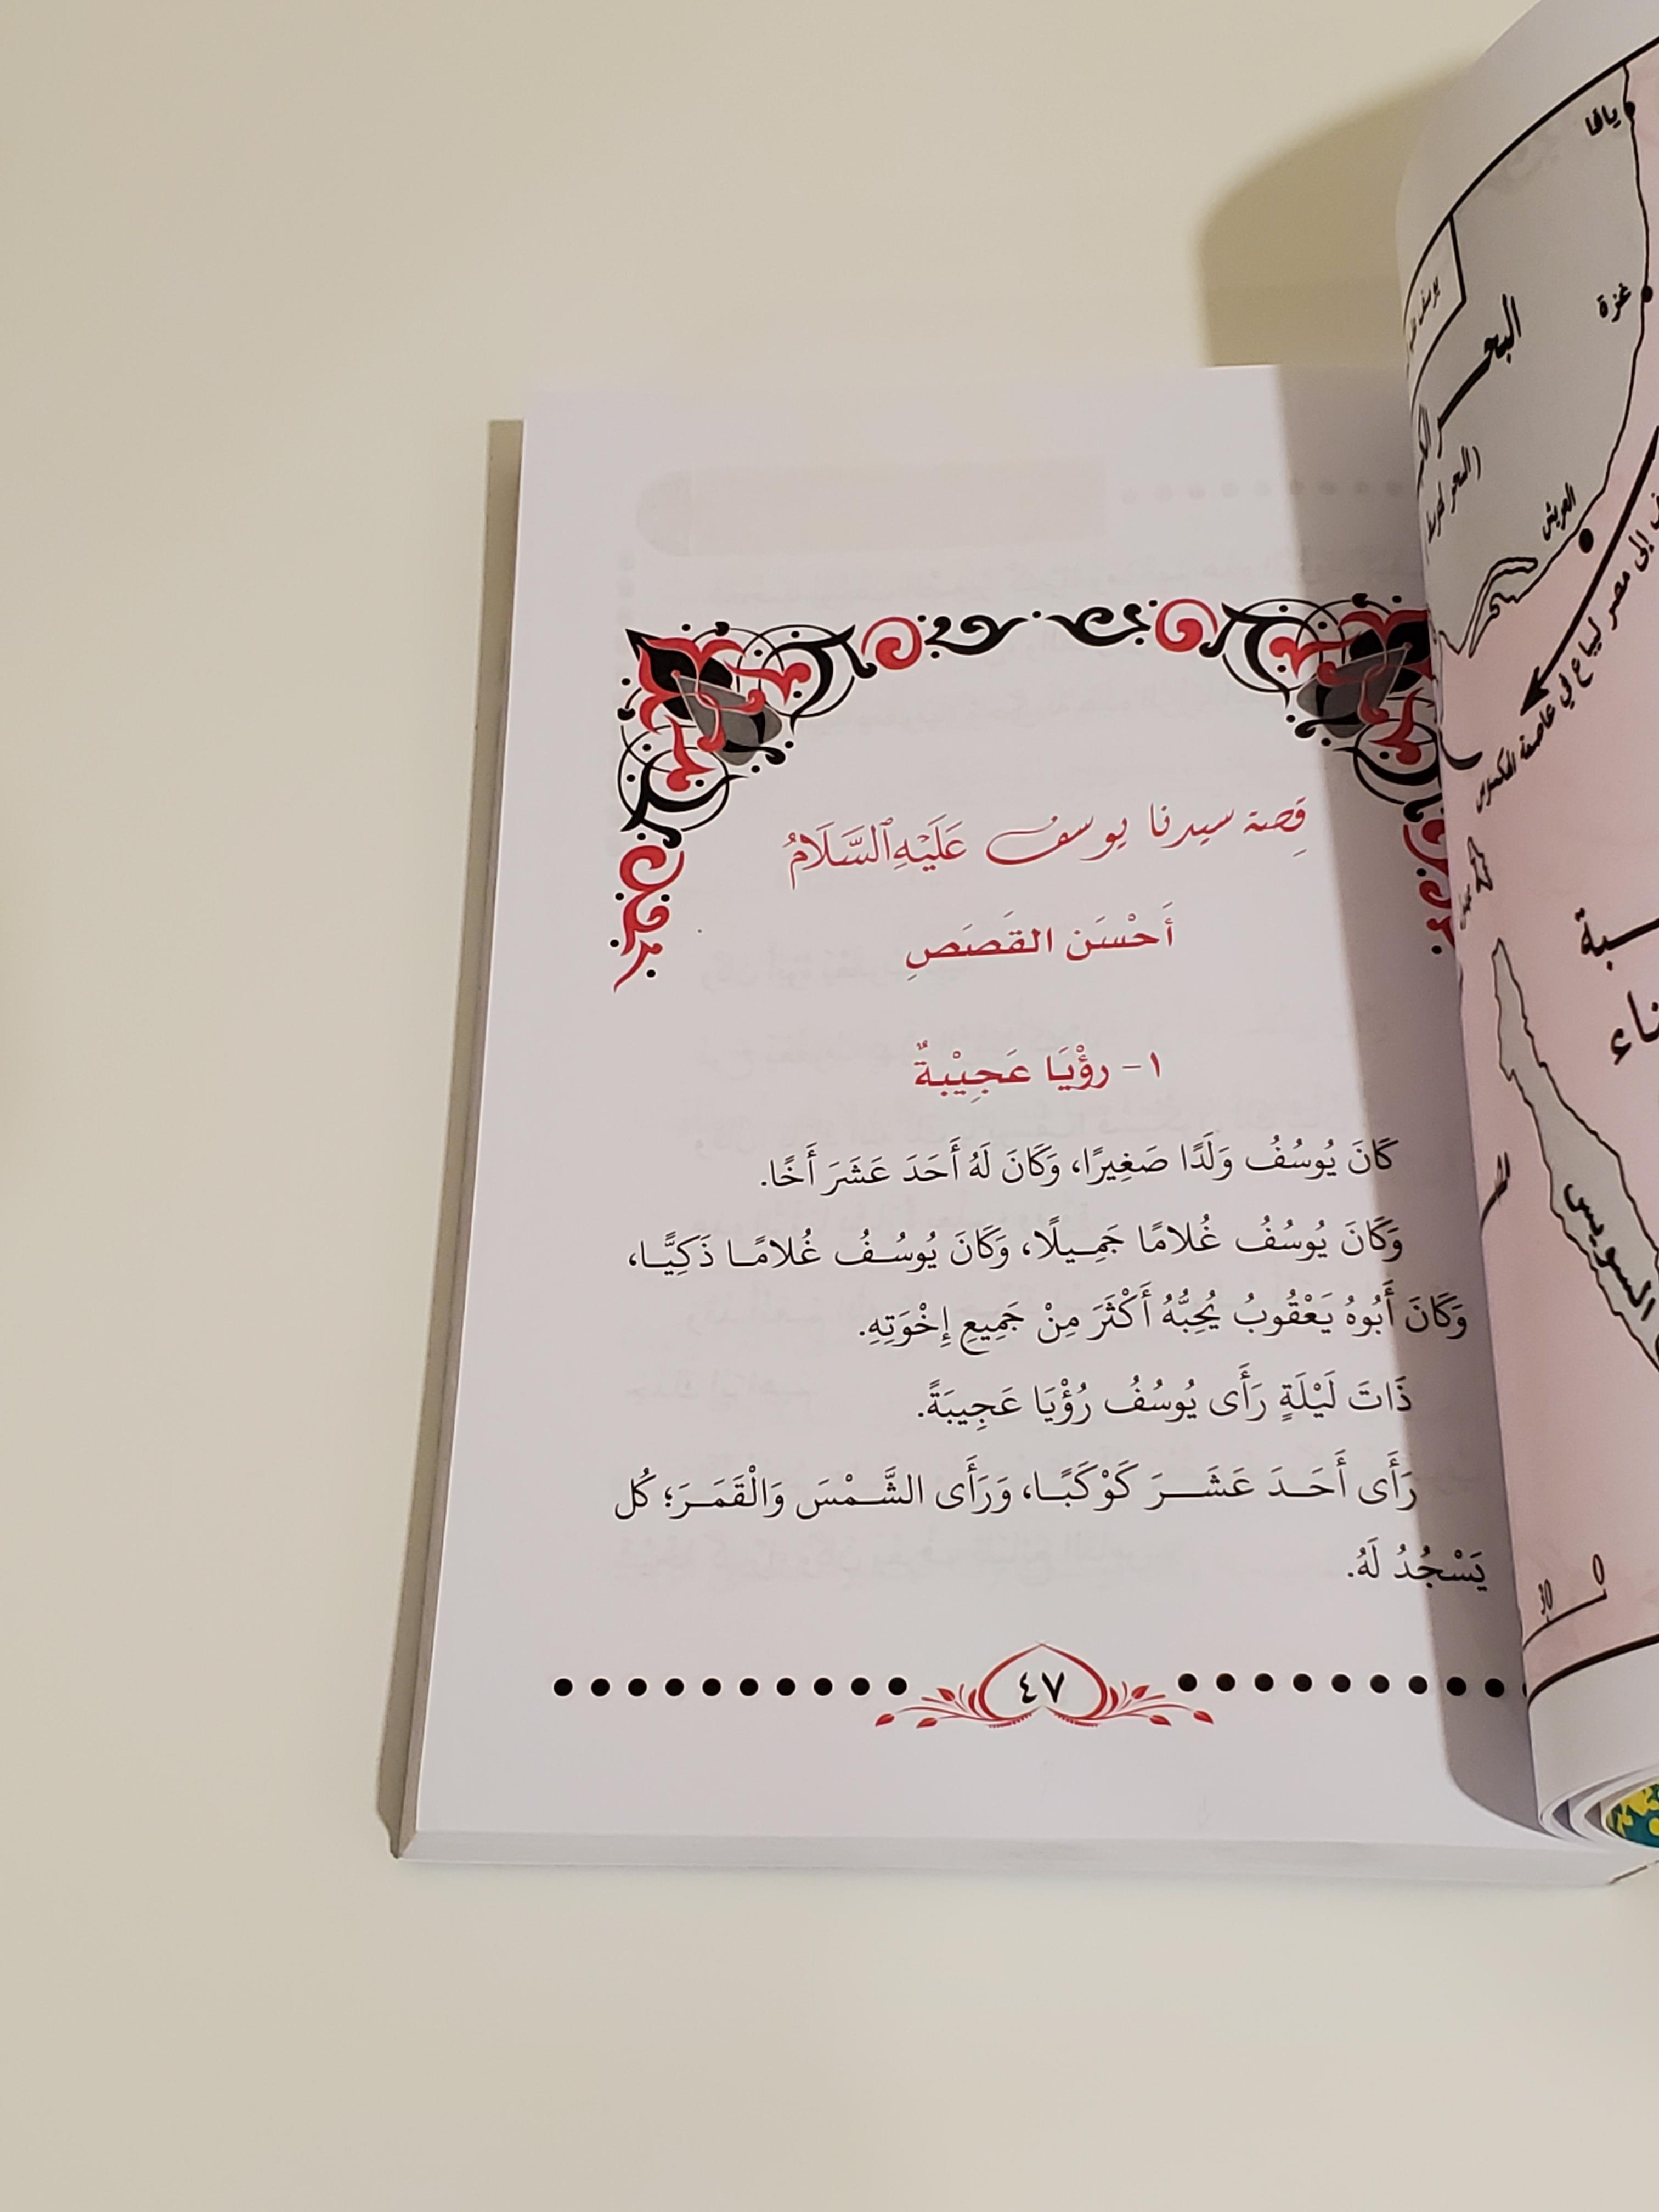 قِصة سيدنا يوسف عَلَيْهِ ٱلسَّلَامُ
أَحْسَن القَصَصِ
١- رؤْيَا عَجِيْبةٌ
كَانَ يُوسُفُ وَلَدًا صَغِيرًا، وَكَانَ لَهُ أَحَدَ عَشَرَ أَخًا.
وَكَانَ يُوسُفُ غُلامًا جَمِـيلًا، وَكَانَ يُوسُـفُ غُلامًـا ذَكِيًّـا،
وَكَانَ أَبُوهُ يَعْقُوبُ يُحِبُّهُ أَكْثَرَ مِنْ جَمِيعِ إِخْوَتِهِ.
ذَاتَ لَيْلَةٍ رَأَى يُوسُفُ رُؤْيَا عَجِيبَةً.
رَأَى أَحَـدَ عَشَـــرَ كَوْكَبًـا، وَرَأَى الشَّـــمْسَ وَالْقَمَـرَ؛ كُل
يَسْجُدُ لَهُ.
٤٧
يافا
غزة
البحـر
العريش
إلى مصر ليباع في عاصمة الهكسوس
السويس
30 0